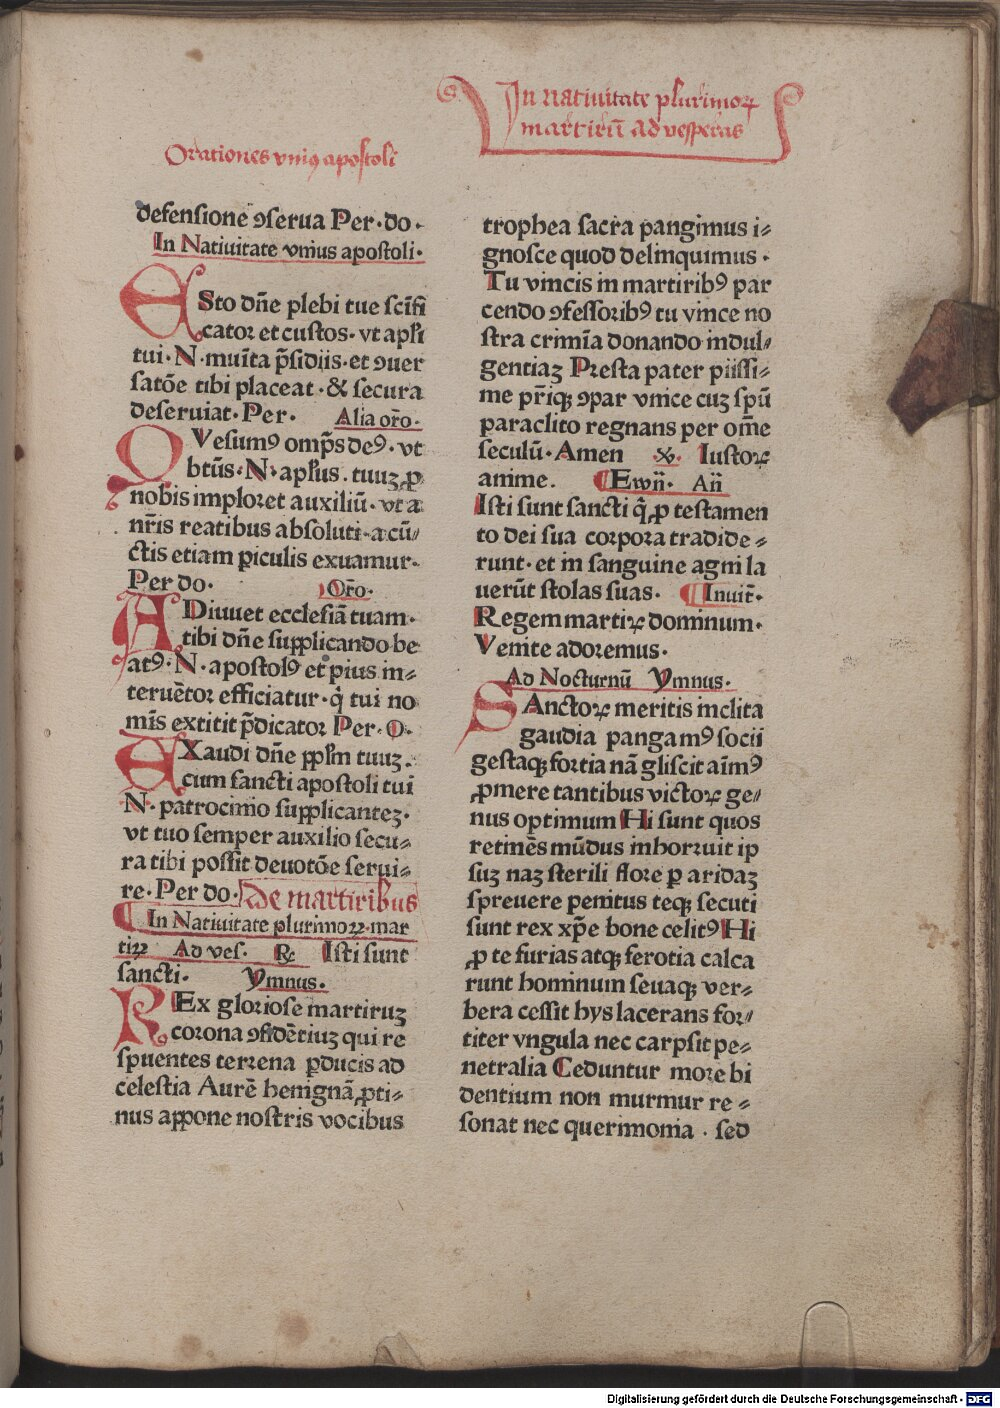 Orationes vniꝰ apostoli
defensione ꝯserua Per·do·
In Natiuitate vnius apostoli·
ESto dn̄e plebi tue scīfi
cator et custos· vt apl̄i
tui· N· muīta p̄sidijs· et ꝯuer
satōe tibi placeat· & secura
deseruiat· Per·
Alia or̄o·
QVesumꝰ omp̄s deꝰ· vt
btūs· N· apl̄us. tuuꝫ ꝓ
nobis imploret auxiliū· vt a
nr̄is reatibus absoluti· a cū/
ctis etiam ꝑiculis exuamur·
Per do·
Or̄o·
ADiuuet ecclesiā tuam·
tibi dn̄e supplicando be
atꝰ· N· apostolꝰ et pius in⸗
teruētor efficiatur· q̄ tui no
mīs extitit p̄dicator Per· O·
EXaudi dn̄e ppl̄m tuuꝫ·
cum sancti apostoli tui
N· patrocinio supplicanteꝫ·
vt tuo semper auxilio secu⸗
ra tibi possit deuotōe serui⸗
re· Per do·
De martiribus
In Natiuitate plurimoꝝ mar
tiꝝ Ad ves· ℟ Isti sunt
sancti· Ymnus·
REx gloriose martiruꝫ
corona ꝯfidētiuꝫ qui re
spuentes terrena ꝑducis ad
celestia Aurē benignā ꝓti⸗
nus appone nostris vocibus
In natiuitate plurimoꝝ
martirū ad vesperas
trophea sacra pangimus i⸗
gnosce quod delinquimus·
Tu vincis in martiribꝰ par
cendo ꝯfessoribꝰ tu vince no
stra crimīa donando indul⸗
gentiaꝫ Presta pater piissi⸗
me pr̄iqꝫ ꝯpar vnice cuꝫ spū
paraclito regnans per om̄e
seculū· Amen ꝟ· Iustoꝝ
anime. Ewn̄· An̄
Isti sunt sancti q̄ ꝓ testamen
to dei sua corpora tradide⸗
runt· et in sanguine agni la
uerūt stolas suas· Inuit̄·
Regem martiꝝ dominum·
Venite adoremus·
Ad Nocturnū Ymnus·
SAnctoꝝ meritis inclita
gaudia pangamꝰ socii
gestaqꝫ fortia nā gliscit aīmꝰ
ꝓmere tantibus victoꝝ ge⸗
nus optimum Hi sunt quos
retinēs mūdus inhorruit ip
suꝫ naꝫ sterili flore ꝑ aridaꝫ
spreuere penitus teqꝫ secuti
sunt rex xp̄e bone celitꝰ Hi
ꝓ te furias atqꝫ ferotia calca
runt hominum seuaqꝫ ver⸗
bera cessit hys lacerans for⸗
titer vngula nec carpsit pe⸗
netralia Ceduntur more bi
dentium non murmur re⸗
sonat nec querimonia· sed
Digitalisierung gefördert durch die Deutsche Forschungsgemeinschaft - DFG